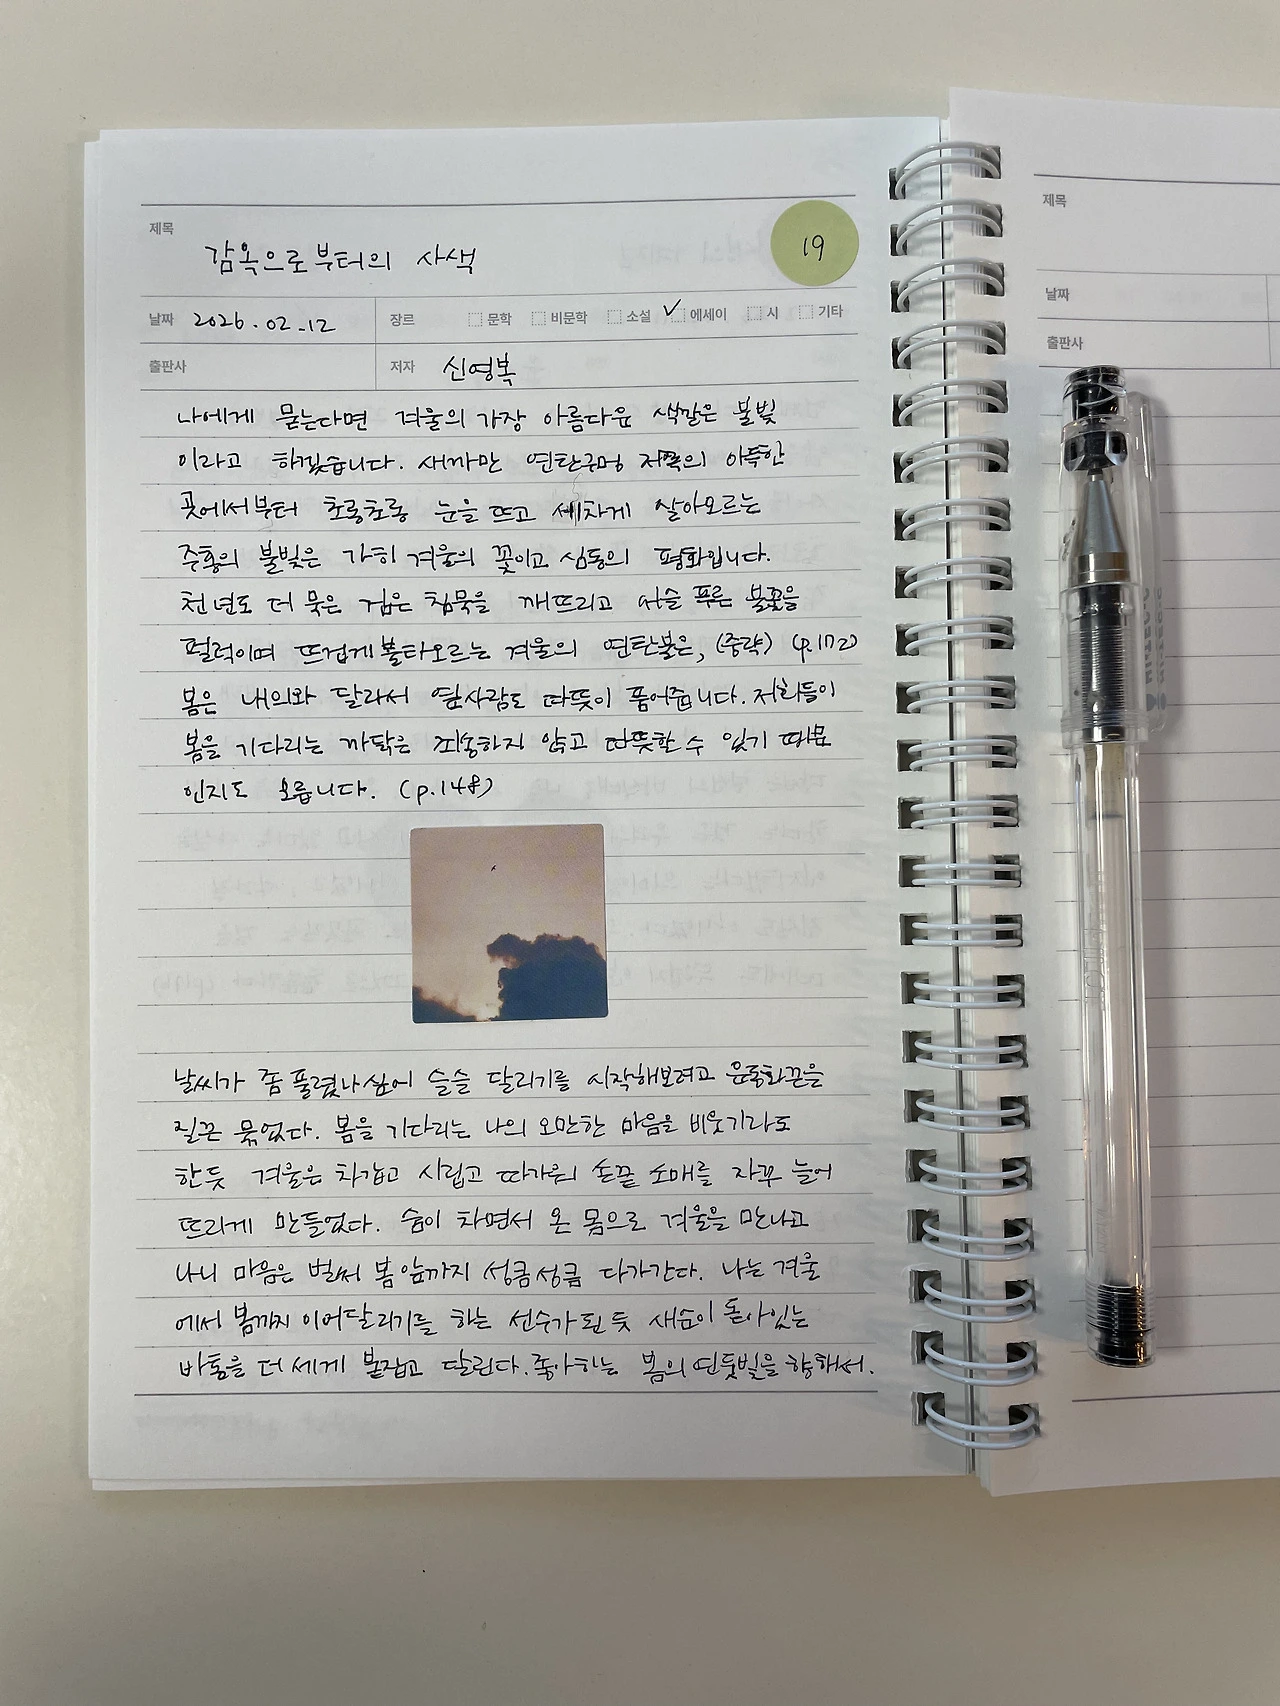 제목
감옥으로부터의 사색
19
날짜 2026.02.12 장르 문학 비문학 소설 에세이 시 기타
출판사 저자 신영복
나에게 묻는다면 겨울의 가장 아름다운 색깔은 불빛
이라고 하겠습니다. 새까만 연탄구멍 저쪽의 아득한
곳에서부터 초롱초롱 눈을 뜨고 세차게 살아오르는
주홍의 불빛은 가히 겨울의 꽃이고 심동의 평화입니다.
천년도 더 묵은 검은 침묵을 깨뜨리고 서슬 푸른 불꽃을
펄럭이며 뜨겁게 불타오르는 겨울의 연탄불은, (중략) (p.172)
봄은 내의와 달라서 옆사람도 따뜻이 품어줍니다. 저희들이
봄을 기다리는 까닭은 죄송하지 않고 따뜻할 수 있기 때문
인지도 모릅니다. (p.148)
날씨가 좀 풀렸나 싶어 슬슬 달리기를 시작해보려고 운동화끈을
질끈 묶었다. 봄을 기다리는 나의 오만한 마음을 비웃기라도
한듯 겨울은 차갑고 시렵고 따가운 손끝 소매를 자꾸 늘어
뜨리게 만들었다. 숨이 차면서 온 몸으로 겨울을 만나고
나니 마음은 벌써 봄 앞까지 성큼성큼 다가간다. 나는 겨울
에서 봄까지 이어달리기를 하는 선수가 된 듯 새순이 돋아있는
바통을 더 세게 붙잡고 달린다. 좋아하는 봄의 연둣빛을 향해서.
제목
날짜
출판사